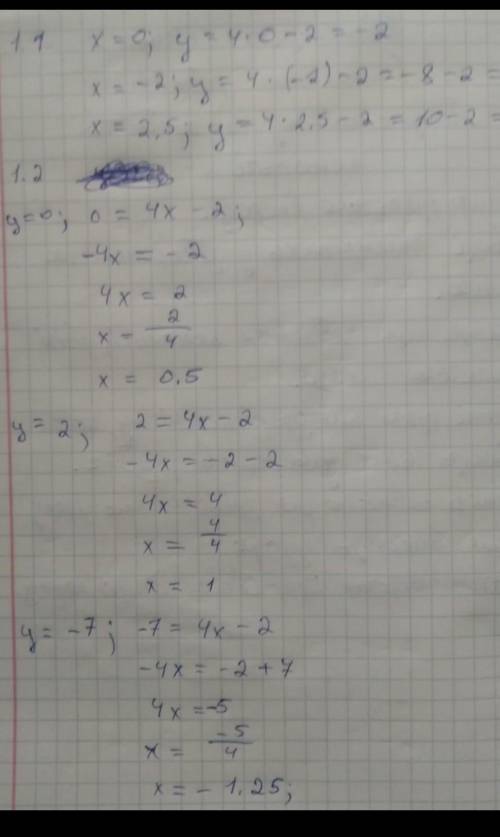 1.1 x = 0; y = 4 · 0 - 2 = -2
x = -2; y = 4 · (-2) - 2 = -8 - 2 =
x = 2,5; y = 4 · 2,5 - 2 = 10 - 2 =
1.2
y=0; 0 = 4x - 2;
-4x = -2
4x = 2
x - 2/4
x = 0.5
y = 2; 2 = 4x - 2
-4x = -2 - 2
4x = 4
x = 4/4
x = 1
y = -7; -7 = 4x - 2
-4x = -2 + 7
4x = -5
x = -5/4
x = - 1.25;